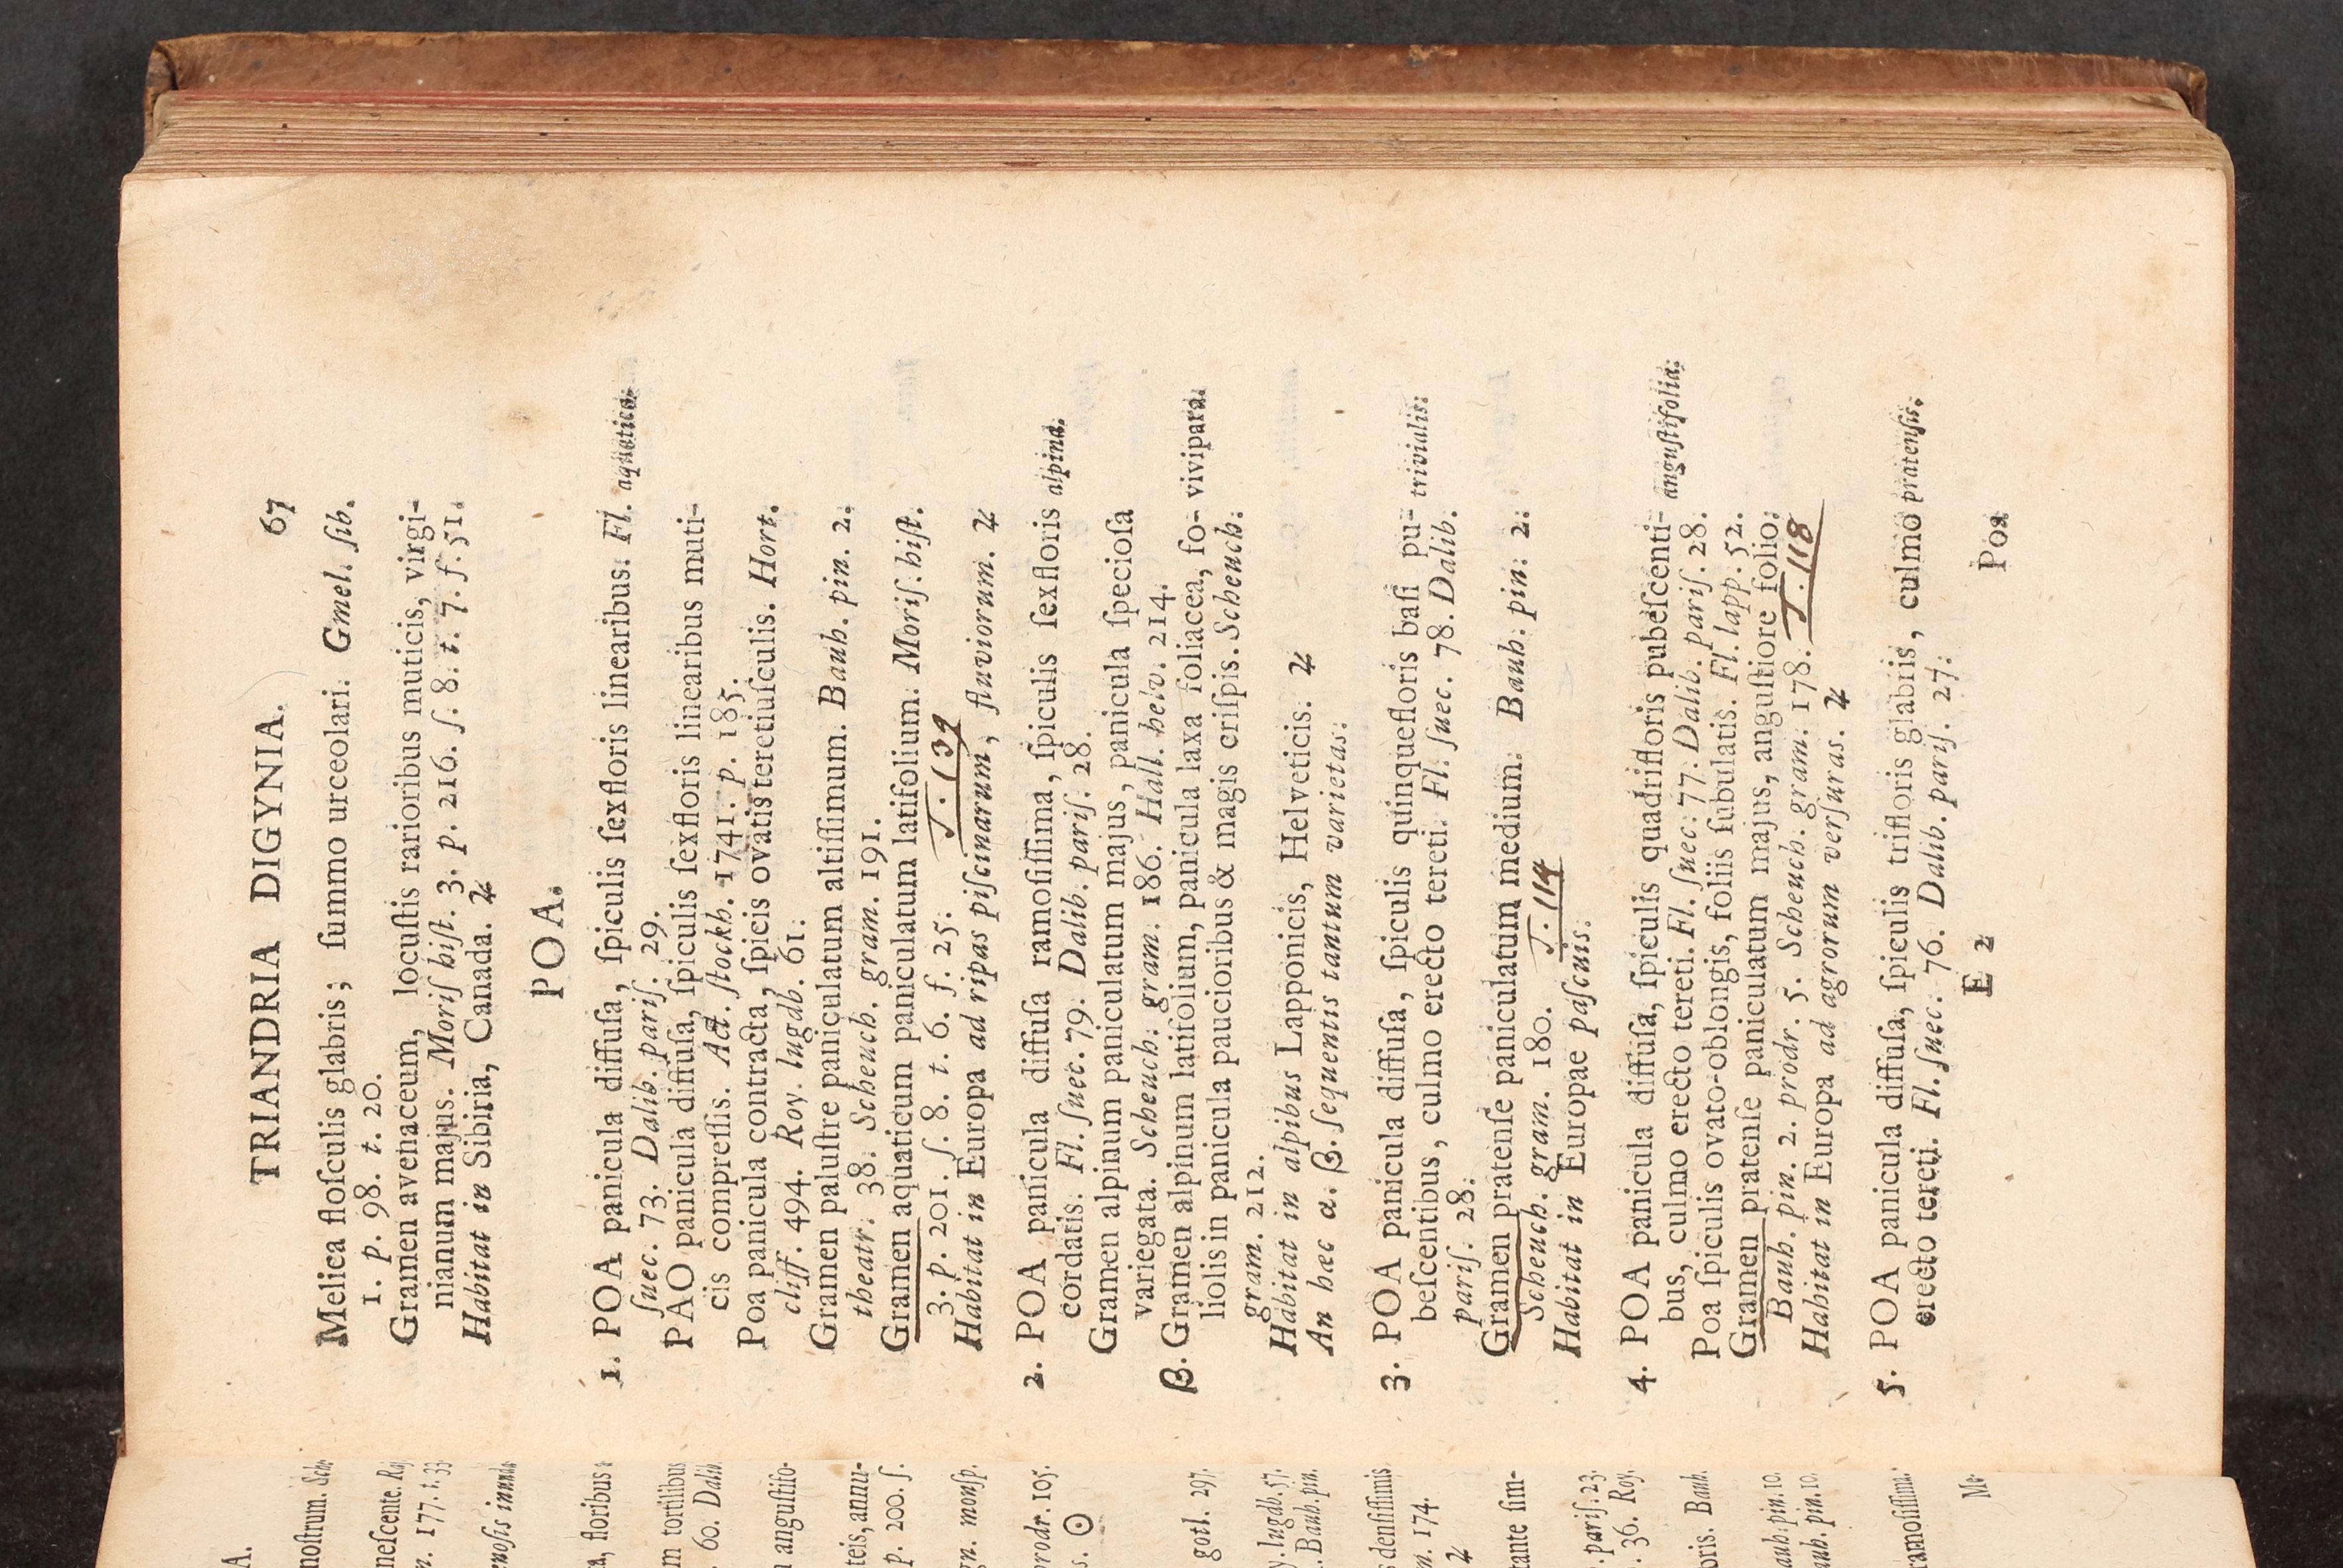 TRIANDRIA DIGYNIA. 67
Melica floſculis glabris; ſummo urceolari. Gmel. ſib.
1. p. 98. t. 20.
Gramen avenaceum, locuſtis rarioribus muticis, virgi-
nianum majus. Moriſ hiſt. 3. p. 216. ſ. 8. t. 7. f. 51.
Habitat in Sibiria, Canada. ♃
POA.
1. POA panicula diffuſa, ſpiculis ſexfloris linearibus. Fl. aquatica.
ſuec. 73. Dalib. pariſ. 29.
PAO panicula diffuſa, ſpiculis ſexfloris linearibus muti-
cis compreſſis. Act. ſtockh. 1741. p. 185.
Poa panicula contracta, ſpicis ovatis teretiuſculis. Hort.
cliff. 494. Roy. lugdb. 61.
Gramen paluſtre paniculatum altiſſimum. Bauh. pin. 2.
theatr. 38. Scheuch. gram. 191.
Gramen aquaticum paniculatum latifolium. Moriſ. hiſt.
3. p. 201. ſ. 8. t. 6. f. 25. T. 139
Habitat in Europa ad ripas piſcinarum, fluviorum. ♃
2. POA panicula diffuſa ramoſiſſima, ſpiculis ſexfloris alpina.
cordatis. Fl. ſuec. 79. Dalib. pariſ. 28.
Gramen alpinum paniculatum majus, panicula ſpecioſa
variegata. Scheuch. gram. 186. Hall. helv. 214.
β. Gramen alpinum latifolium, panicula laxa foliacea, fo- vivipara.
liolis in panicula paucioribus & magis criſpis. Scheuch.
gram. 212.
Habitat in alpibus Lapponicis, Helveticis. ♃
An hæc α. β. ſequentis tantum varietas.
3. POA panicula diffuſa, ſpiculis quinquefloris baſi pu- trivialis.
beſcentibus, culmo erecto tereti. Fl. ſuec. 78. Dalib.
pariſ. 28.
Gramen pratenſe paniculatum medium. Bauh. pin. 2.
Scheuch. gram. 180. T. 114
Habitat in Europae paſcuis.
4. POA panicula diffuſa, ſpiculis quadrifloris pubeſcenti- anguſtifolia.
bus, culmo erecto tereti. Fl. ſuec. 77. Dalib. pariſ. 28.
Poa ſpiculis ovato-oblongis, foliis ſubulatis. Fl. lapp. 52.
Gramen pratenſe paniculatum majus, anguſtiore folio.
Bauh. pin. 2. prodr. 5. Scheuch. gram. 178. T. 118
Habitat in Europa ad agrorum verſuras. ♃
5. POA panicula diffuſa, ſpiculis trifloris glabris, culmo pratenſis.
erecto tereti. Fl. ſuec. 76. Dalib. pariſ. 27.
E 2 Poa
A.
noſtrum. Sch.
neſcente. Raj
n. 177. t. 33
enoſis inunda
a, floribus
m tortilibus
. 60. Dalib.
anguſtifo-
teis, annu-
p. 200. ſ.
gn. monſp.
prodr. 105.
s. ☉
gotl. 297.
y. lugdb. 57.
. Bauh. pin.
s denſiſſimis
m. 174.
♃
tante ſim-
. pariſ. 23.
. 36. Roy.
oris. Bauh.
auh. pin. 10.
auh. pin. 10
ramoſiſſima.
Me-